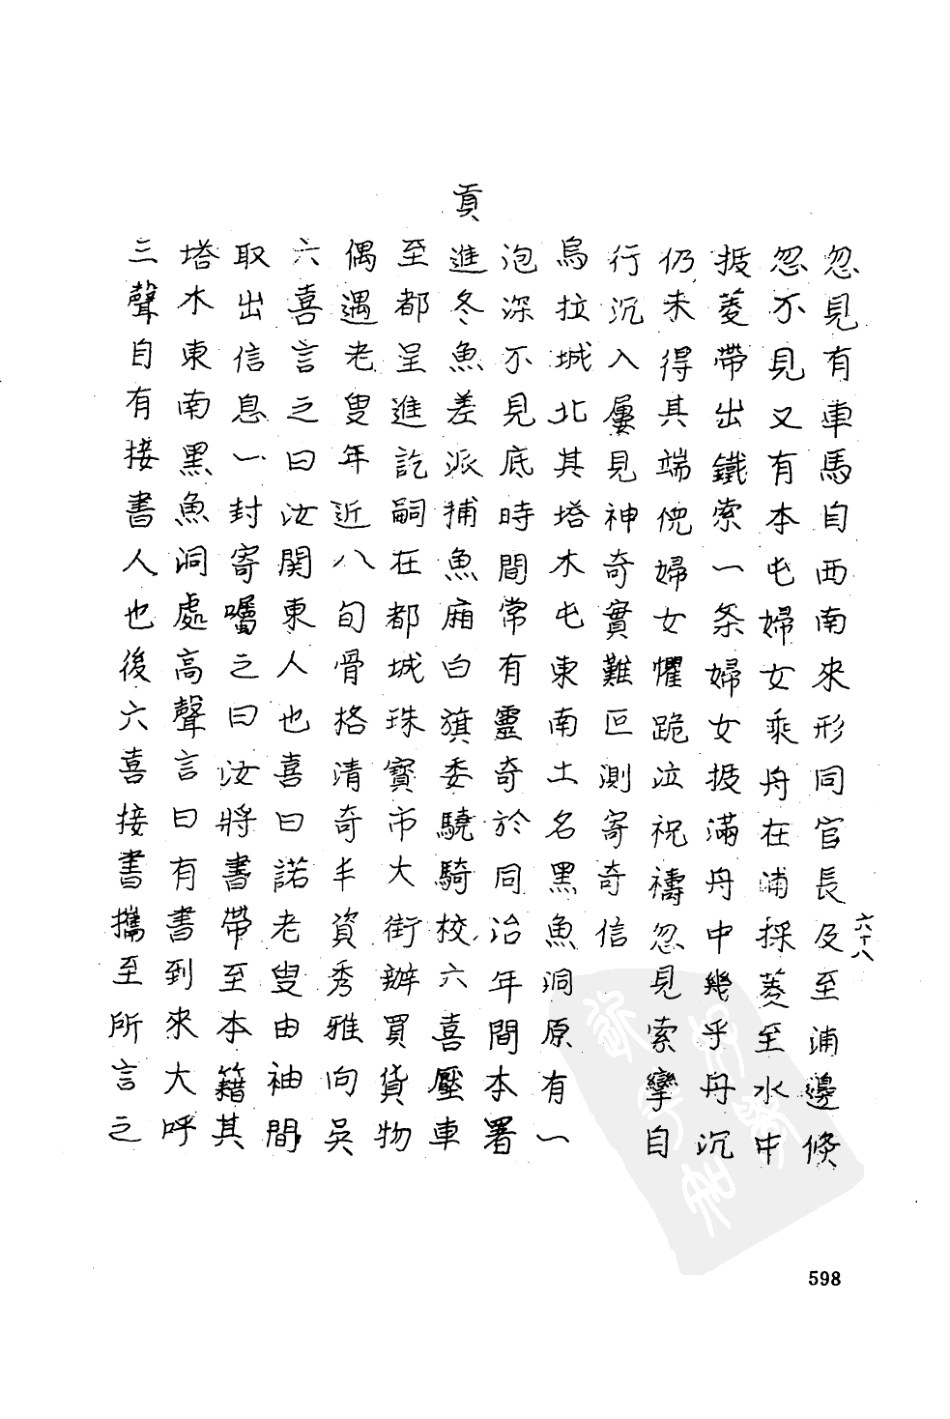 忽見有車馬自西南來形同官長及至浦邊倏
忽不見又有本屯婦女乘舟在浦採菱至水中
扳菱帶出鐵索一条婦女扳滿舟中幾乎舟沉
仍未得其端倪婦女懼跪泣祝禱忽見索孿自
行沉入屢見神奇實難叵測寄奇信
烏拉城北其塔木屯東南土名黑魚洞原有一
泡深不見底時間常有靈奇於同治年間本署
貢
進冬魚差派捕魚廂白旗委驍騎校六喜壓車
至都呈進訖嗣在都城珠寶市大街辦買貨物
偶遇老叟年近八旬骨格清奇丰資秀雅向吳
六喜言之曰汝関東人也喜曰諾老叟由袖間
取出信息一封寄囑之曰汝將書帶至本籍其
塔木東南黑魚洞處高聲言曰有書到來大呼
三聲自有接書人也後六喜接書攜至所言之
六十八
598